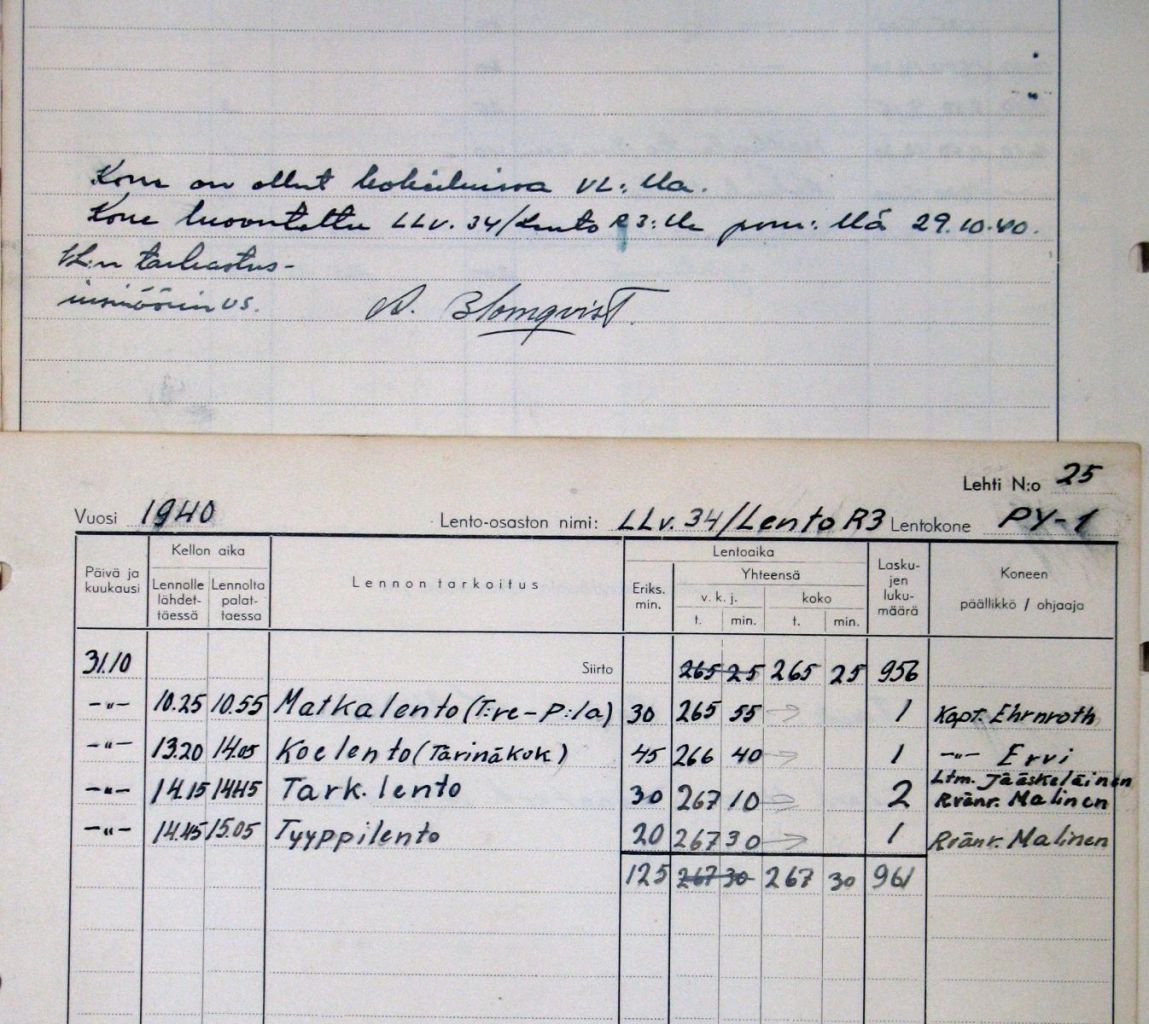 Kone on ollut kokeiluissa VL:lla.
Kone luovutettu LLv. 34/Lento R3:lle pvm:llä 29.10.40.
VL:n tarkastus-
insinöörin vs. A. Blomqvist.
Lehti N:o 25
Vuosi 1940 Lento-osaston nimi: LLv. 34/Lento R3 Lentokone PY-1
Päivä ja kuukausi
Kellon aika
Lennolle lähdet-täessä
Lennolta palat-taessa
Lennon tarkoitus
Lentoaika
Eriks. min.
Yhteensä
v. k. j. koko
t. min. t. min.
Lasku-jen luku-määrä
Koneen päällikkö / ohjaaja
31.10 Siirto 265 25 265 25 956
-"- 10.25 10.55 Matkalento (T:re-P:la) 30 265 55 1 Kapt. Ehrnroth
-"- 13.20 14.05 Koelento (Tärinäkok) 45 266 40 1 -"- Ervi
-"- 14.15 14.45 Tark. lento 30 267 10 2 Ltm. Jääskeläinen
Rvänr. Malinen
-"- 14.45 15.05 Tyyppilento 20 267 30 1 Rvänr. Malinen
125 267 30 267 30 961